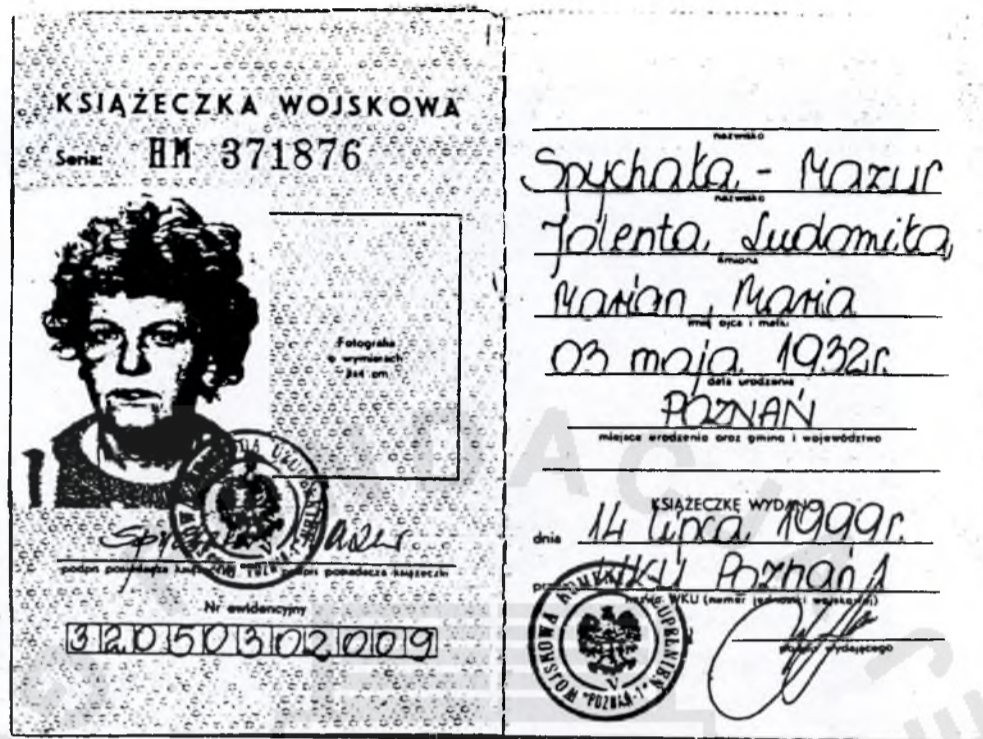 KSIĄŻECZKA WOJSKOWA
Seria: HM 371876
Fotografia
o wymiarach
3x4 cm
podpis posiadacza książeczki
Nr ewidencyjny
32050302009
nazwisko
Spychała - Mazur
nazwisko
Jolenta, Ludomiła,
imiona
Marian, Maria
imię ojca i matki
03 maja 1932r.
data urodzenia
POZNAŃ
miejsce urodzenia oraz gmina i województwo
KSIĄŻECZKĘ WYDANO
dnia 14 lipca 1999r.
WKU Poznań 1
nazwa WKU (numer jednostki wojskowej)
podpis wydającego
WOJSKOWA KOMENDA UZUPEŁNIEŃ
"POZNAŃ-1"